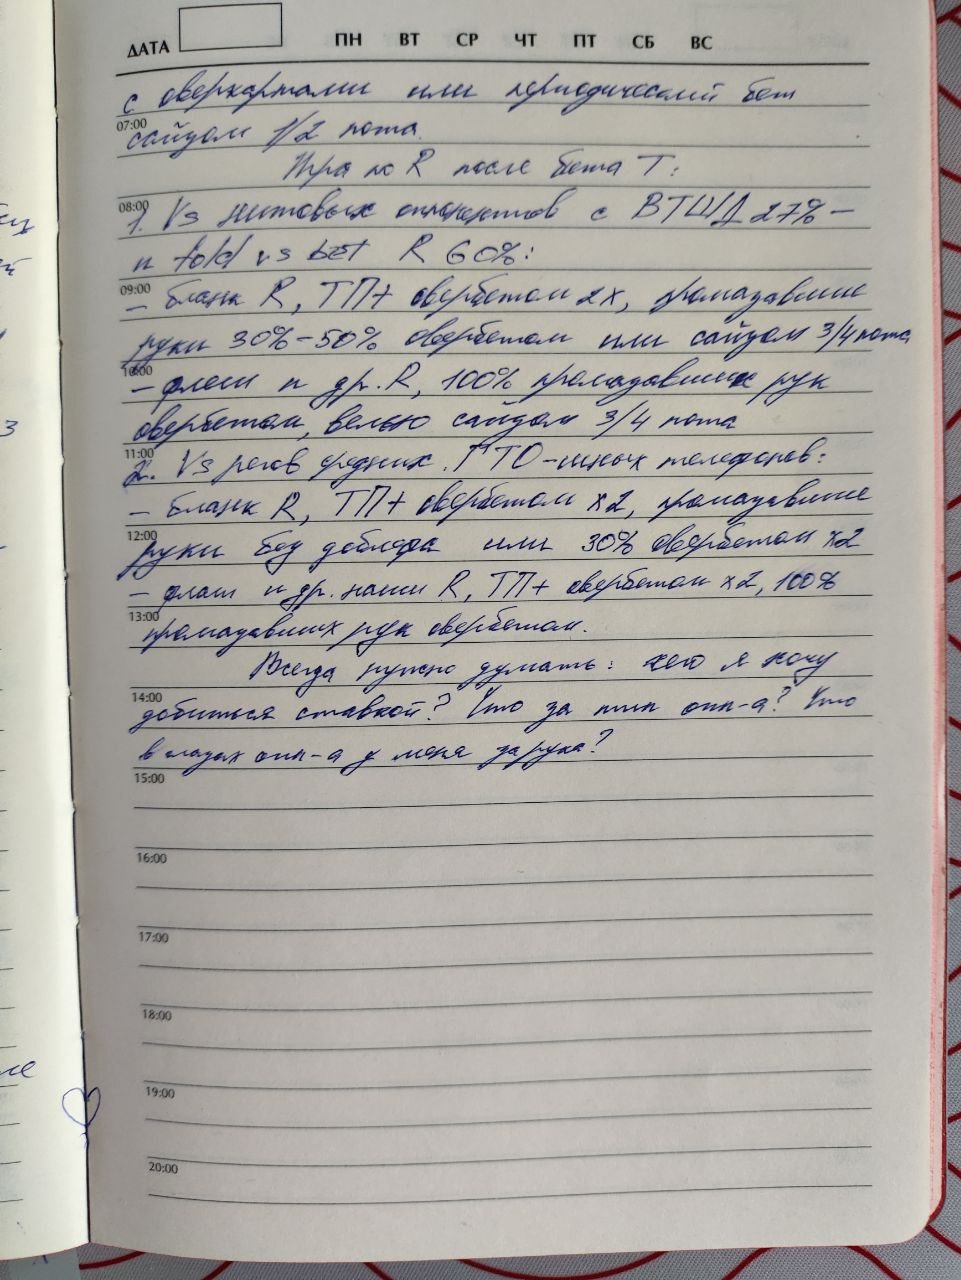 ДАТА ПН ВТ СР ЧТ ПТ СБ ВС
с оверкартами или периодический бет
07:00
сайзом 1/2 пота.
Игра по R после бета Т:
08:00
1. Vs нитовых оппонентов с ВТШД 27% –
и fold vs bet R 60%:
09:00
– бланк R, ТП+ овербетом 2х, промазавшие
руки 30%–50% овербетом или сайзом 3/4 пота
10:00
– флеш и др. R, 100% промазавших рук
овербетом, велью сайзом 3/4 пота
11:00
2. Vs регов средних, ГТО-шных телефонов:
– бланк R, ТП+ овербетом х2, промазавшие
12:00
руки без блефа или 30% овербетом х2
– флеш и др. наши R, ТП+ овербетом х2, 100%
13:00
промазавших рук овербетом.
Всегда нужно думать: чего я хочу
14:00
добиться ставкой? Что за тип опп-а? Что
в глазах опп-а у меня за рука?
15:00
16:00
17:00
18:00
19:00
20:00